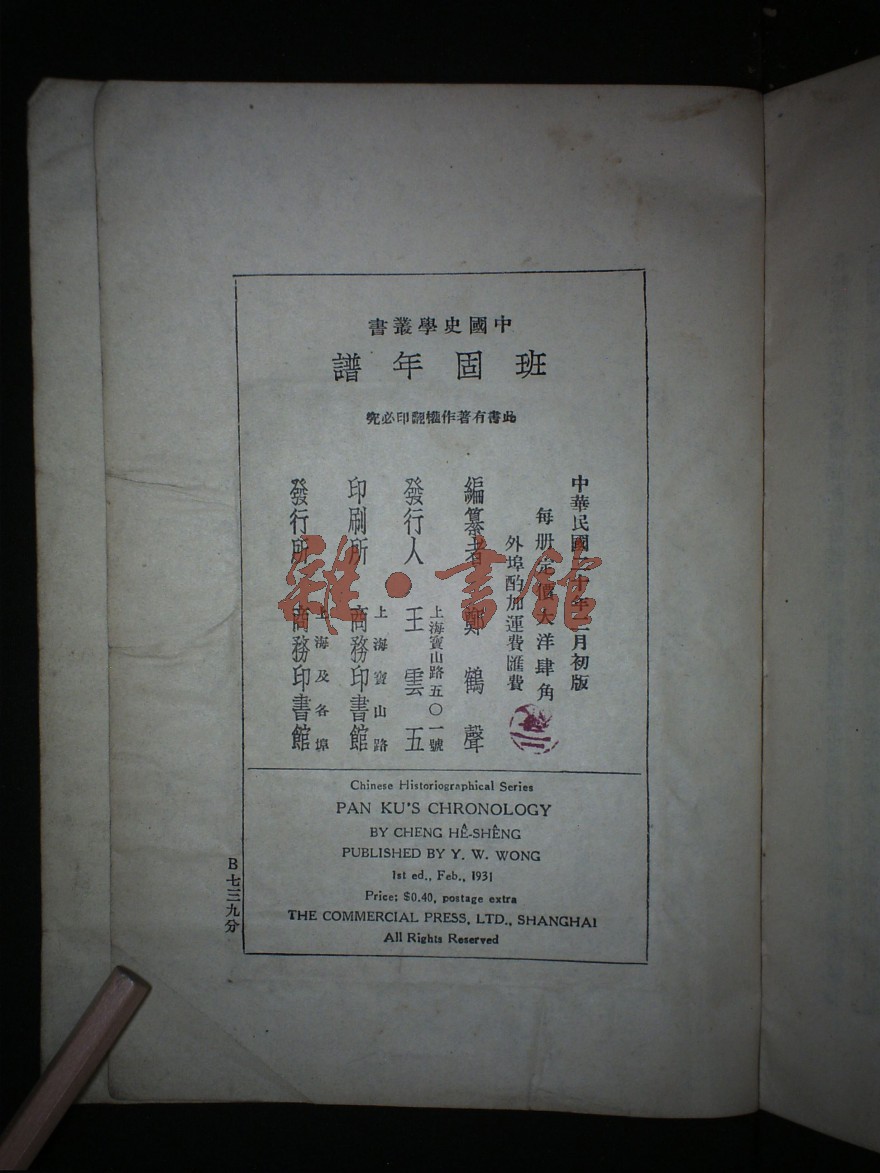 中國史學叢書
班固年譜
此書有著作權翻印必究
中華民國二十年二月初版
每册定價大洋肆角
外埠酌加運費匯費
編纂者 鄭鶴聲
上海寶山路五〇一號
發行人 王雲五
上海寶山路
印刷所 商務印書館
上海及各埠
發行所 商務印書館
雜·書館
Chinese Historiographical Series
PAN KU'S CHRONOLOGY
BY CHENG HÊ-SHÊNG
PUBLISHED BY Y. W. WONG
1st ed., Feb., 1931
Price; $0.40, postage extra
THE COMMERCIAL PRESS, LTD., SHANGHAI
All Rights Reserved
B七三九分